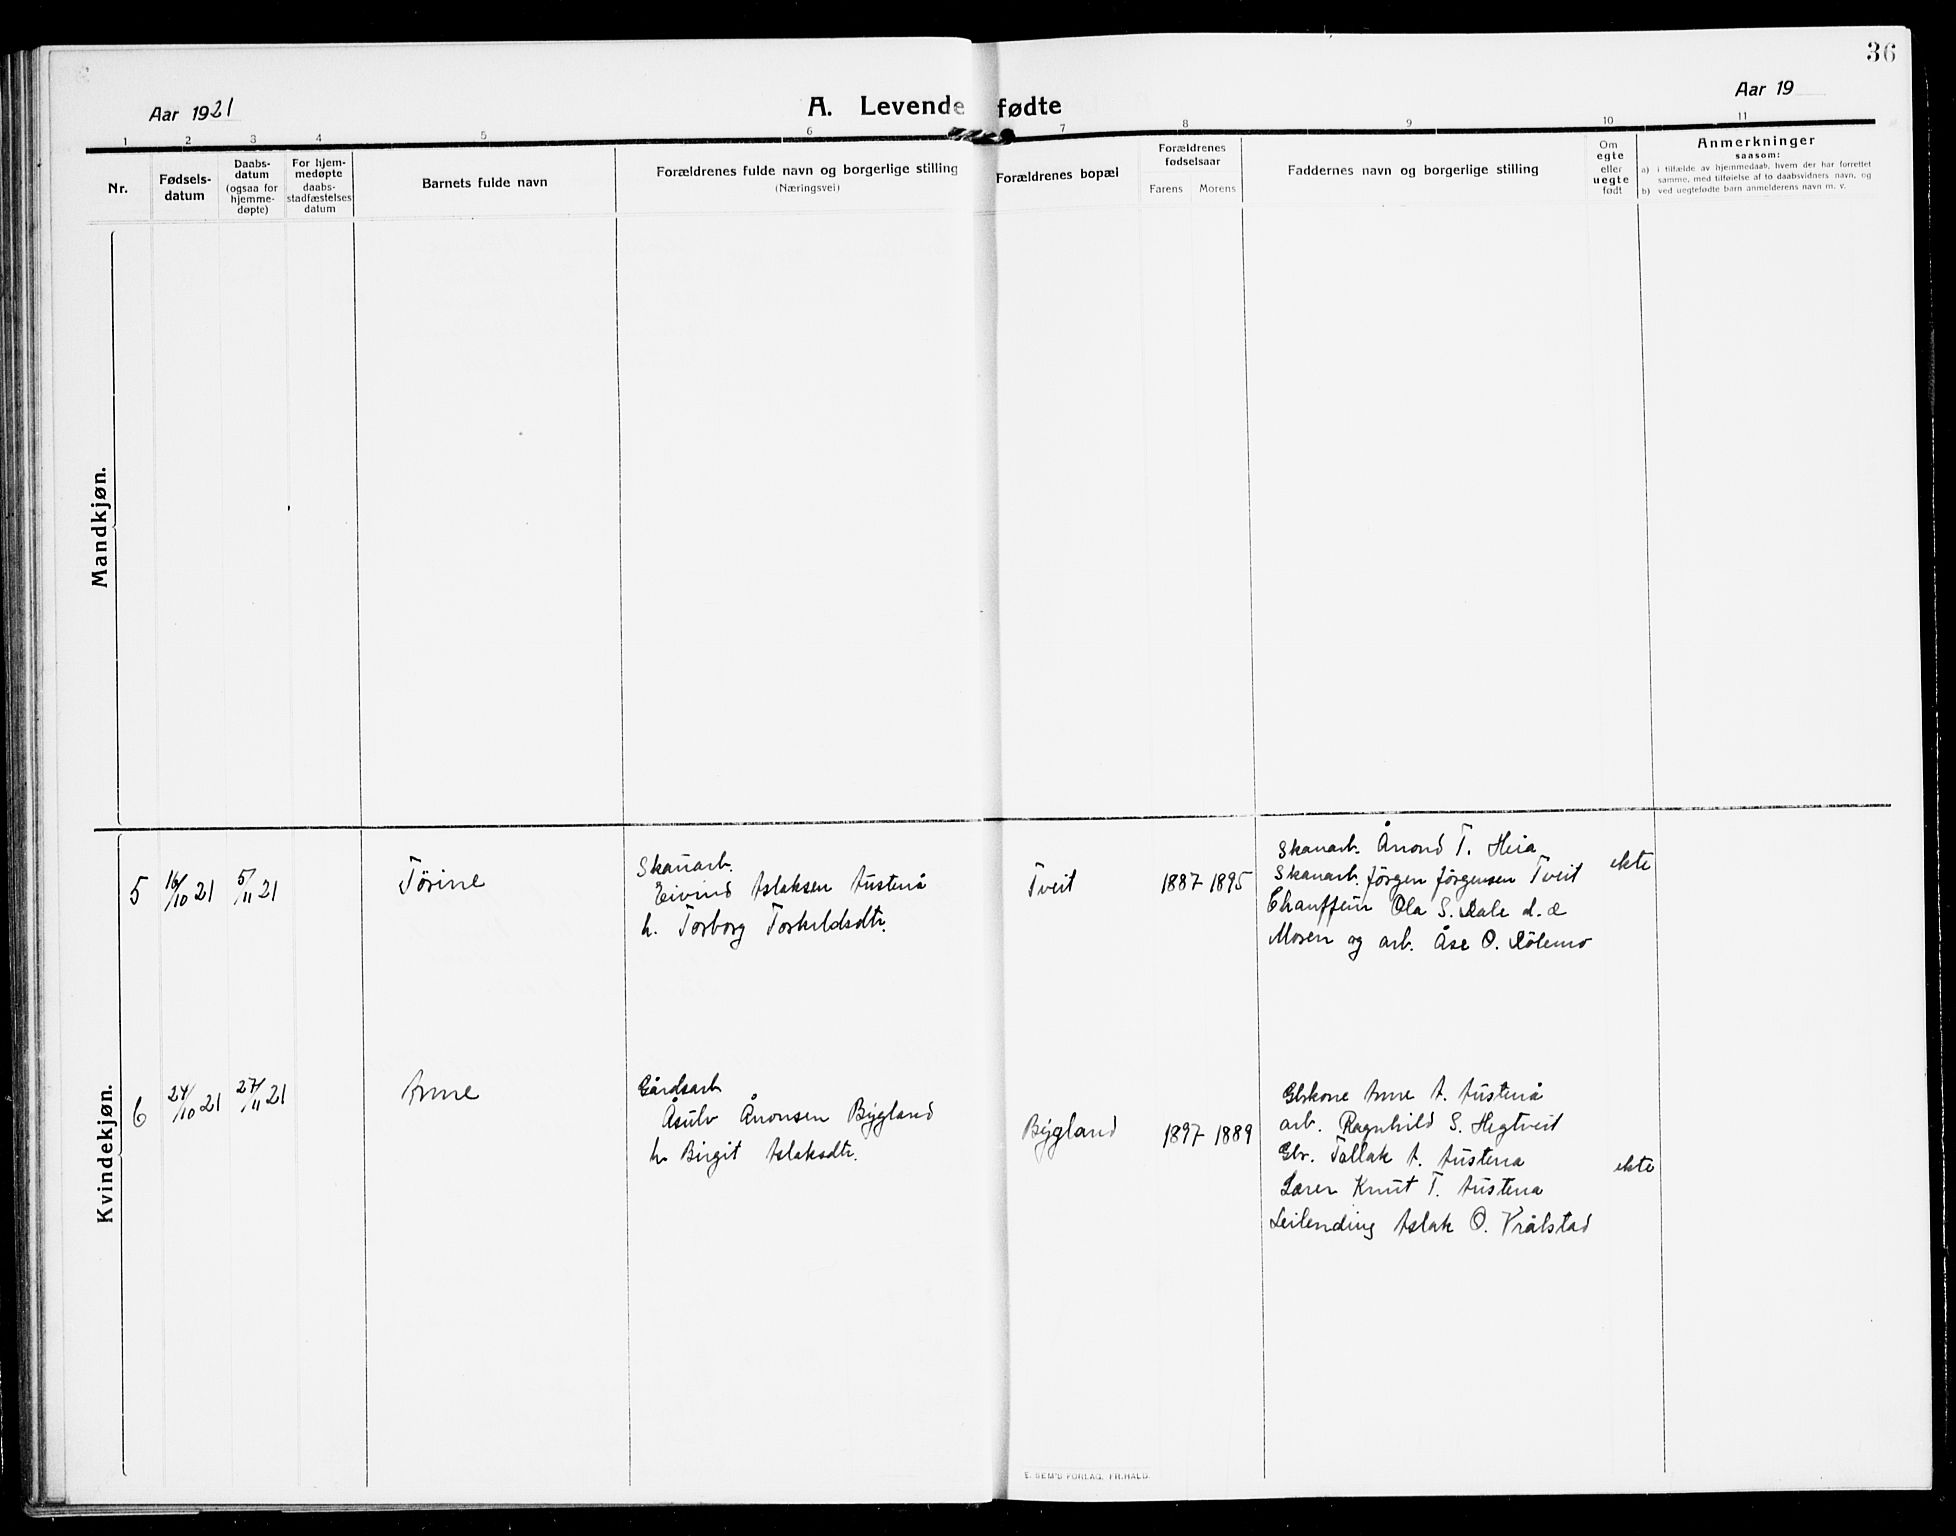 36
Aar 1921
A. Levende fødte
Aar 19
1 2 3 4 5 6 7 8 9 10 11
Nr.
Fødsels-
datum
Daabs-
datum
(ogsaa for
hjemme-
døpte)
For hjem-
medøpte
daabs-
stadfæstelses
datum
Barnets fulde navn
Forældrenes fulde navn og borgerlige stilling
(Næringsvei)
Forældrenes bopæl
Forældrenes
fødselsaar
Farens Morens
Faddernes navn og borgerlige stilling
Om
egte
eller
uegte
født
Anmerkninger
saasom:
a) i tilfælde av hjemmedaab, hvem der har forrettet
samme, med tilføielse af to daabsvidners navn, og
b) ved uegtefødte barn anmelderens navn m. v.
Mandkjøn.
Kvindekjøn.
5 16/10 21 5/11 21 Törine
Skauarb.
Eivind Aslaksen Austenå
h. Torborg Torkildsdtr.
Tveit 1887 1895
Skauarb. Ånond T. Heia
Skauarb. Jörgen Jörgensen Tveit
Chauffeur Ola S. Dale d. æ
Moren og arb. Åse O. Rölemo
ekte
6 24/10 21 27/11 21 Anne
Gårdsarb
Åsulv Ånonsen Bygland
h. Birgit Aslaksdtr.
Bygland 1897 1889
Gbrkone Anne A. Austenå
arb. Ragnhild S. Hegtveit
Gbr. Tallak A. Austenå
Lærer Knut T. Austenå
Leilending Aslak O. Vrålstad
ekte
E. SEM'S FORLAG, FR.HALD.